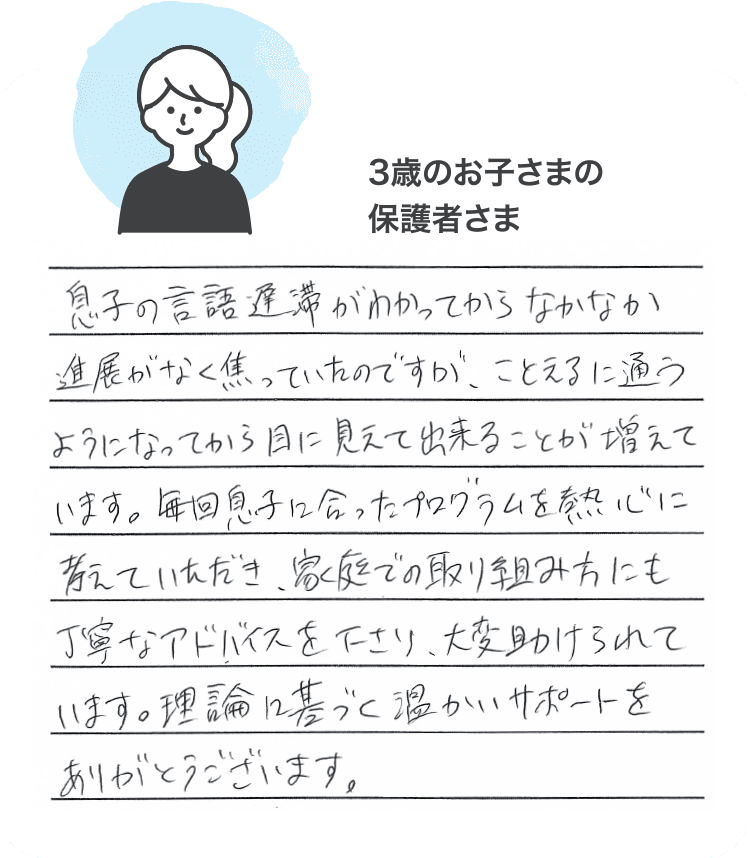 3歳のお子さまの
保護者さま
息子の言語遅滞がわかってからなかなか
進展がなく焦っていたのですが、ことえるに通う
ようになってから目に見えて出来ることが増えて
います。毎回息子に合ったプログラムを熱心に
考えていただき、家庭での取り組み方にも
丁寧なアドバイスを下さり、大変助けられて
います。理論に基づく温かいサポートを
ありがとうございます。